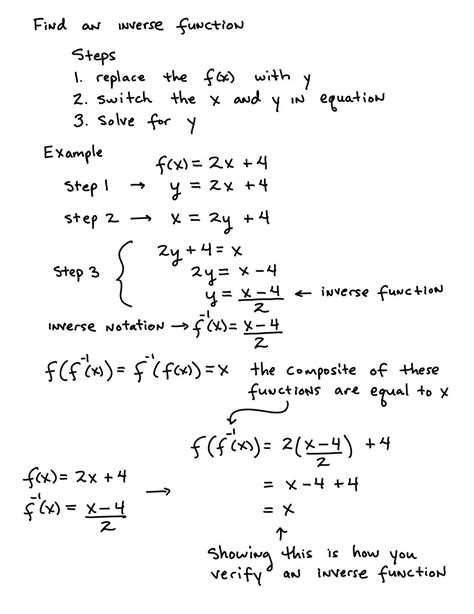 Find an inverse function
Steps
1. replace the f(x) with y
2. switch the x and y in equation
3. Solve for y
Example
f(x) = 2x + 4
Step 1 → y = 2x + 4
step 2 → x = 2y + 4
2y + 4 = x
step 3 { 2y = x - 4
y = (x - 4)/2 ← inverse function
inverse notation → f⁻¹(x) = (x - 4)/2
f(f⁻¹(x)) = f⁻¹(f(x)) = x the composite of these
functions are equal to x
f(f⁻¹(x)) = 2((x - 4)/2) + 4
f(x) = 2x + 4
f⁻¹(x) = (x - 4)/2 →
= x - 4 + 4
= x
↑
Showing this is how you
verify an inverse function